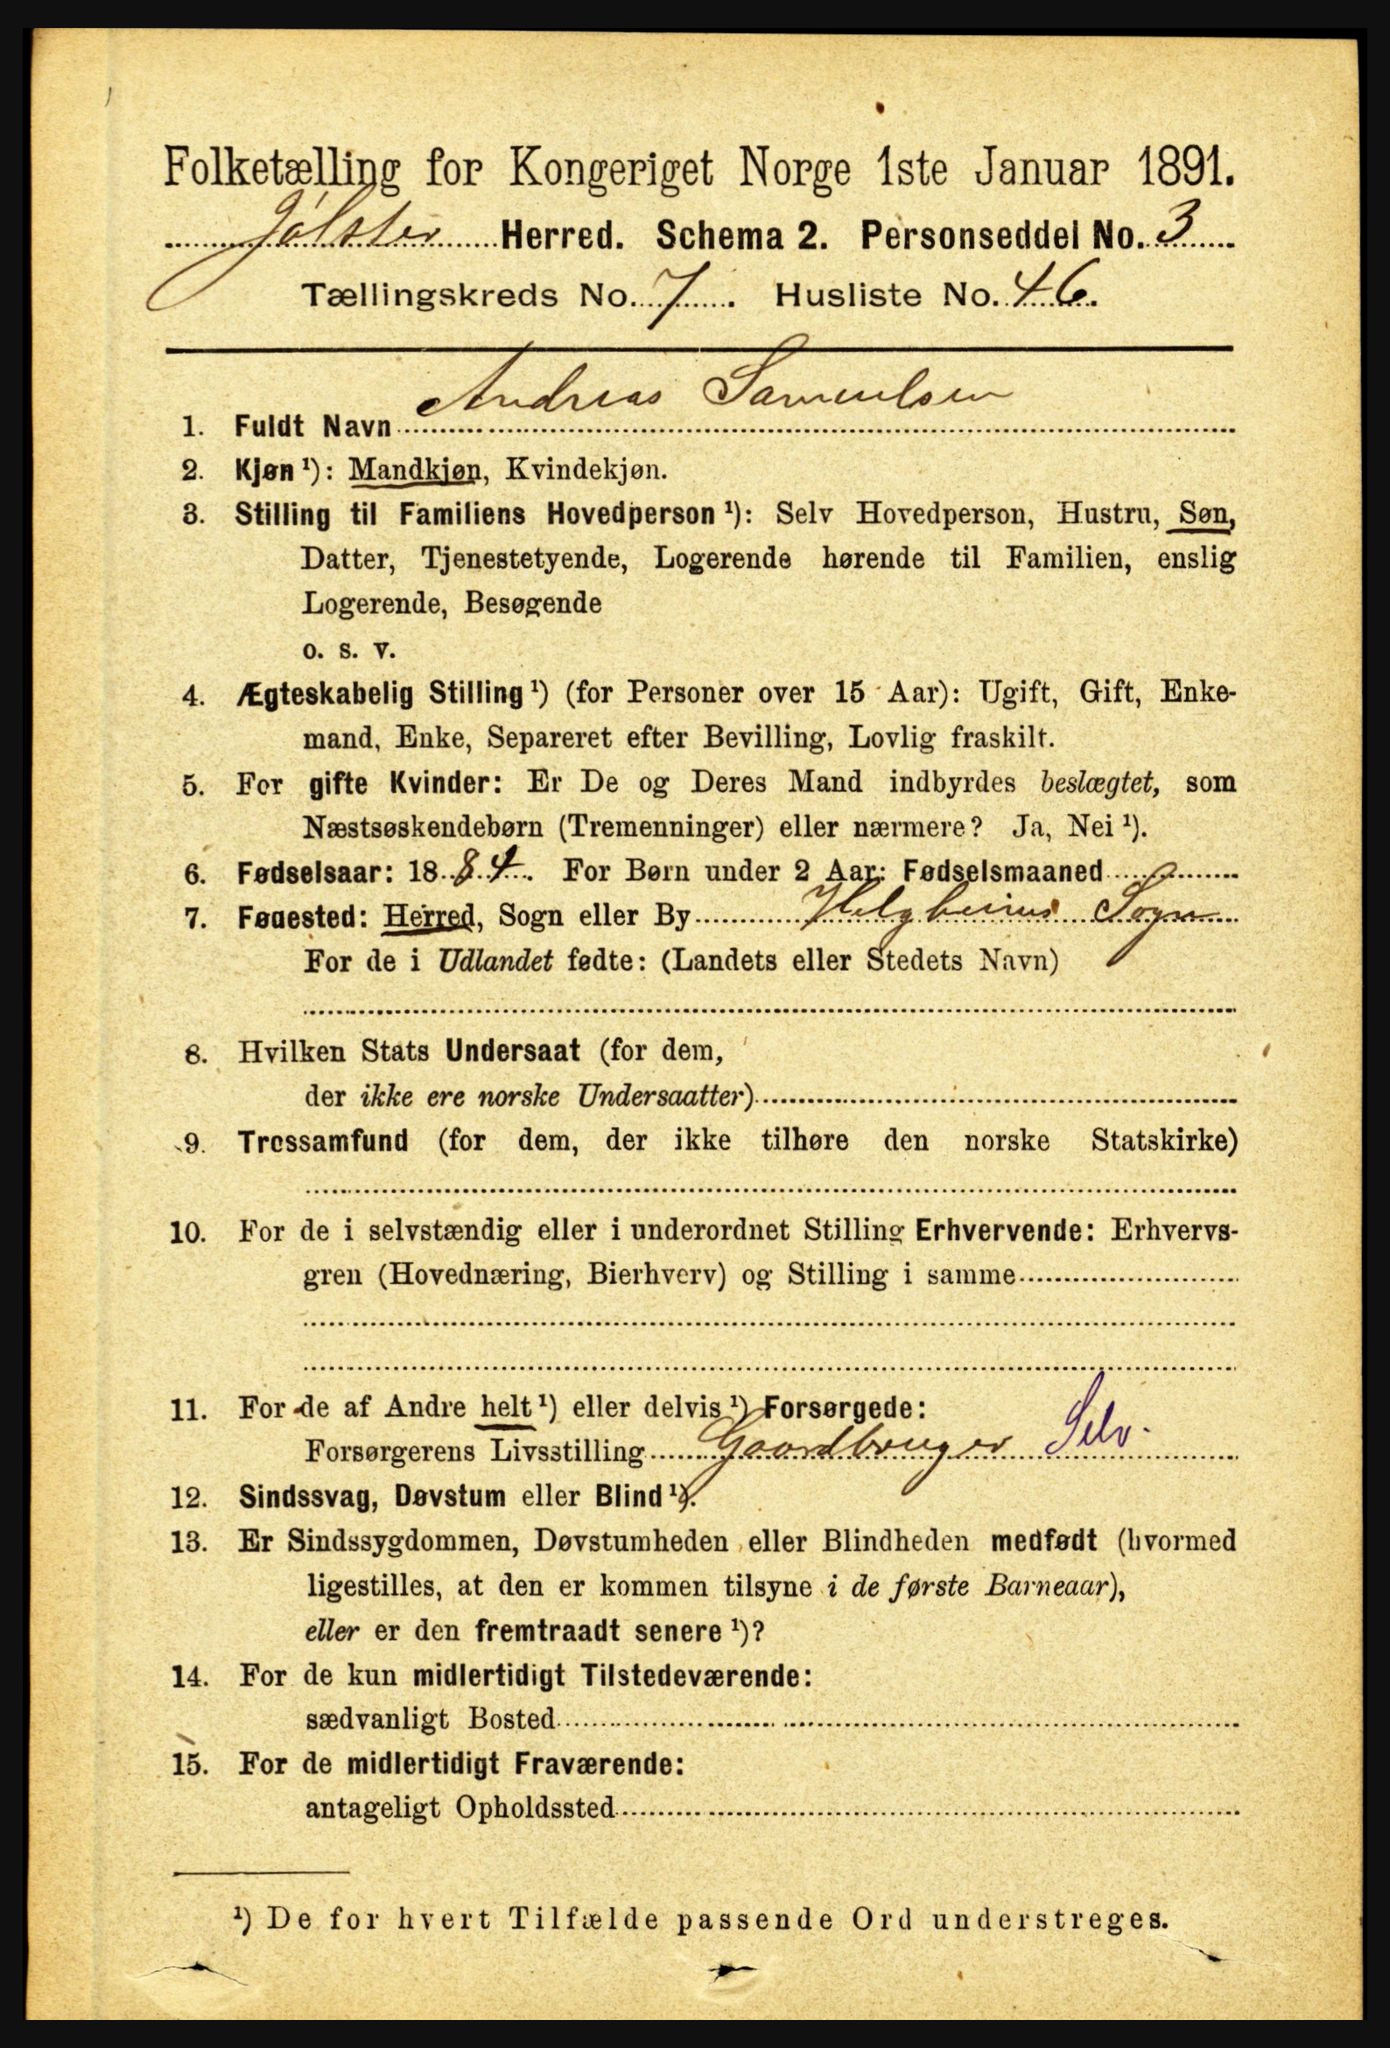 Folketælling for Kongeriget Norge 1ste Januar 1891.
Jølster Herred. Schema 2. Personseddel No. 3
Tællingskreds No. 7. Husliste No. 46.
1. Fuldt Navn Andreas Samuelsen
2. Kjøn ¹): Mandkjøn, Kvindekjøn.
3. Stilling til Familiens Hovedperson ¹): Selv Hovedperson, Hustru, Søn,
Datter, Tjenestetyende, Logerende hørende til Familien, enslig
Logerende, Besøgende
o. s. v.
4. Ægteskabelig Stilling ¹) (for Personer over 15 Aar): Ugift, Gift, Enke-
mand, Enke, Separeret efter Bevilling, Lovlig fraskilt.
5. For gifte Kvinder: Er De og Deres Mand indbyrdes beslægtet, som
Næstsøskendebørn (Tremenninger) eller nærmere? Ja, Nei ¹).
6. Fødselsaar: 1884. For Børn under 2 Aar: Fødselsmaaned
7. Fødested: Herred, Sogn eller By Helgheims Sogn
For de i Udlandet fødte: (Landets eller Stedets Navn)
8. Hvilken Stats Undersaat (for dem,
der ikke ere norske Undersaatter)
9. Trossamfund (for dem, der ikke tilhøre den norske Statskirke)
10. For de i selvstændig eller i underordnet Stilling Erhvervende: Erhvervs-
gren (Hovednæring, Bierhverv) og Stilling i samme
11. For de af Andre helt ¹) eller delvis ¹) Forsørgede:
Forsørgerens Livsstilling Gaardbruger Selv.
12. Sindssvag, Døvstum eller Blind ¹).
13. Er Sindssygdommen, Døvstumheden eller Blindheden medfødt (hvormed
ligestilles, at den er kommen tilsyne i de første Barneaar),
eller er den fremtraadt senere ¹)?
14. For de kun midlertidigt Tilstedeværende:
sædvanligt Bosted
15. For de midlertidigt Fraværende:
antageligt Opholdssted
¹) De for hvert Tilfælde passende Ord understreges.